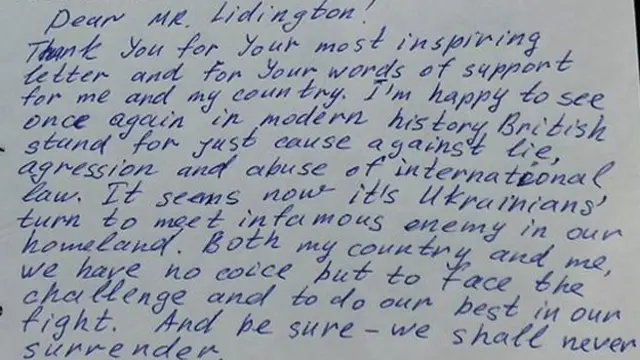 Dear MR. Lidington!
Thank You for Your most inspiring
letter and for Your words of support
for me and my country. I'm happy to see
once again in modern history British
stand for just cause against lie,
agression and abuse of international
law. It seems now it's Ukrainians'
turn to meet infamous enemy in our
homeland. Both my country and me,
we have no coice but to face the
challenge and to do our best in our
fight. And be sure – we shall never
surrender.